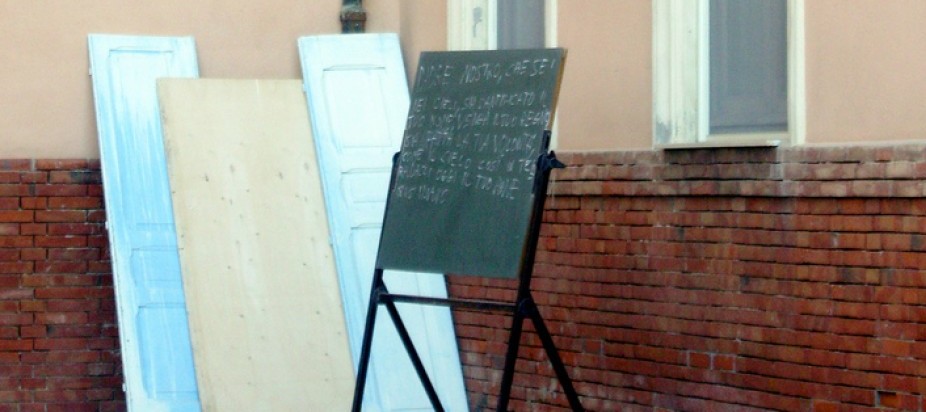 PADRE NOSTRO, CHE SEI
NEI CIELI, SIA SANTIFICATO IL
TUO NOME, VENGA IL TUO REGNO
SIA FATTA LA TUA VOLONTÀ
COME IN CIELO COSÌ IN TERRA
DACCI OGGI IL TUO PANE